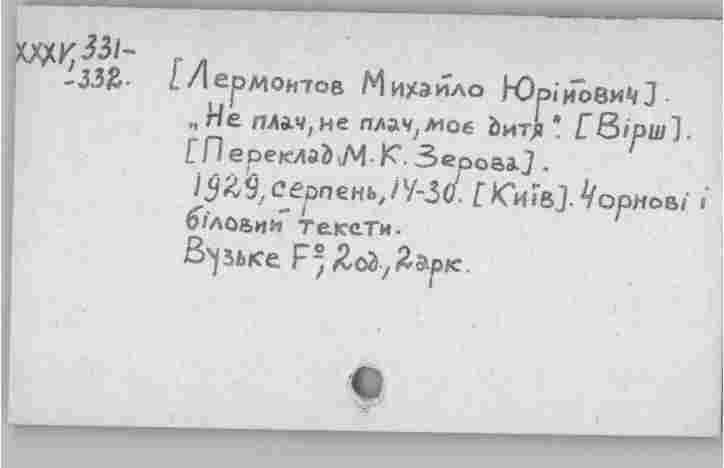 XXXV, 331-
-332.
[Лермонтов Михайло Юрійович].
„Не плач, не плач, моє дитя". [Вірш].
[Переклад М.К. Зерова].
1929, серпень, 14-30. [Київ]. Чорнові і
біловий тексти.
Вузьке Fº, 2 од., 2 арк.